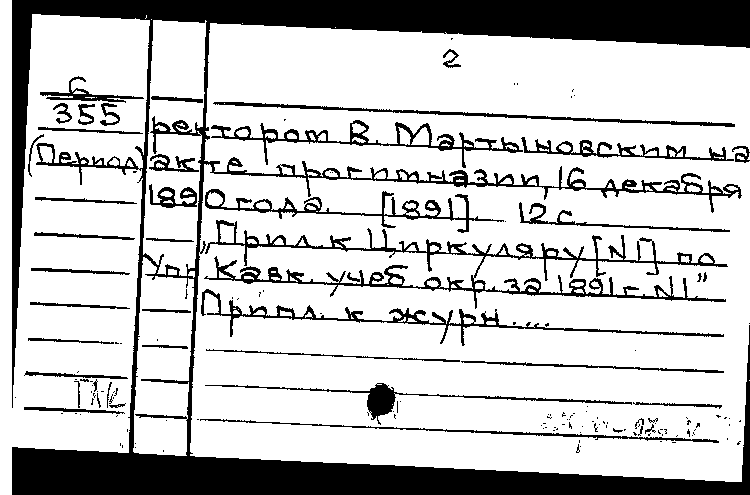 2
6
355
(Период)
ректором В. Мартыновским на
акте прогимназии, 16 декабря
1890 года. [1891]. 12 с.
„Прил. к Циркуляру [N1] по
Упр. Кавк. учеб. окр. за 1891 г. N1."
Припл. к журн....